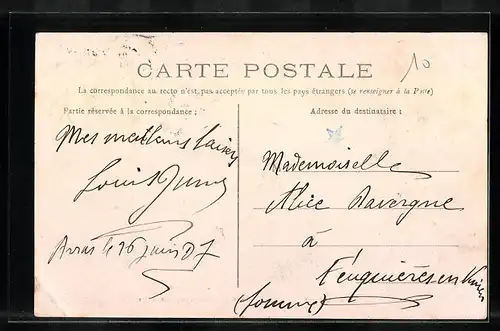 10
CARTE POSTALE
La correspondance au recto n'est pas acceptée par tous les pays étrangers (se renseigner à la Poste)
Partie réservée à la correspondance :
Adresse du destinataire :
Mes meilleurs baisers
Louis
Arras le 16 Juin 07
Mademoiselle
Alice Davergne
à
Feuquières en Vimeu
(Somme)